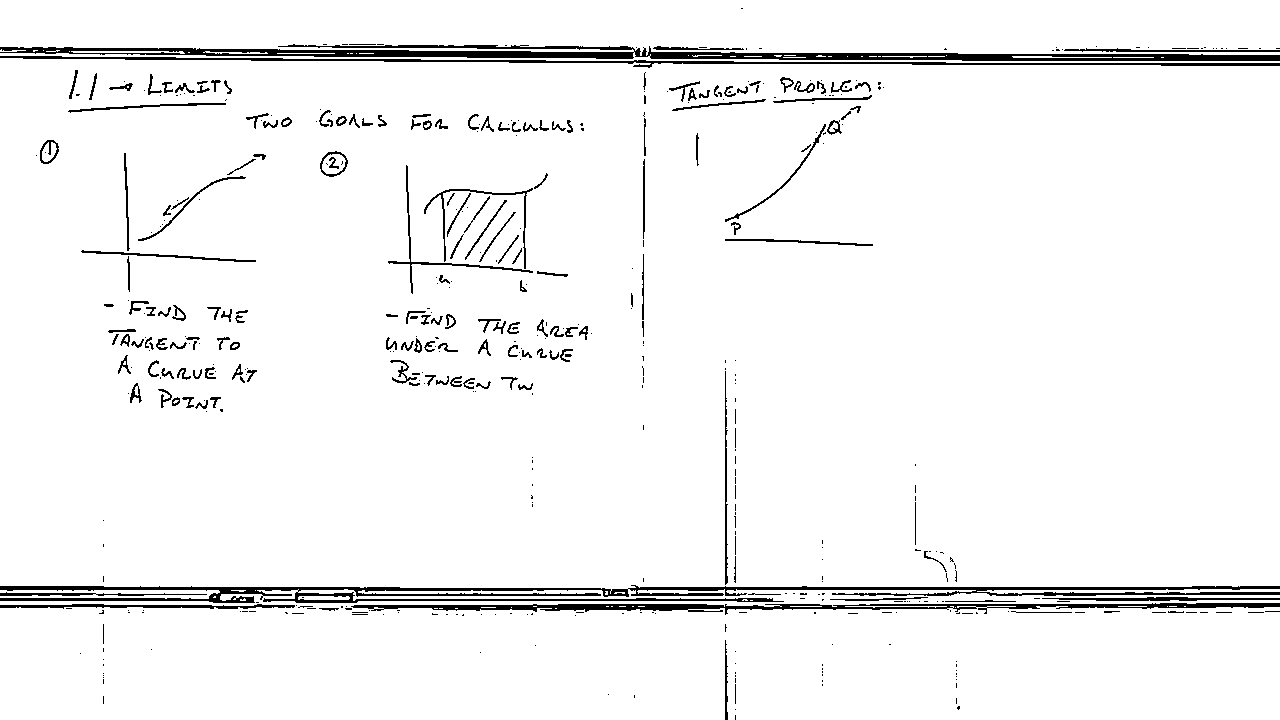 1.1 → LIMITS
TWO GOALS FOR CALCULUS:
①
②
a
b
- FIND THE
TANGENT TO
A CURVE AT
A POINT.
- FIND THE AREA
UNDER A CURVE
BETWEEN TW
TANGENT PROBLEM:
Q
P